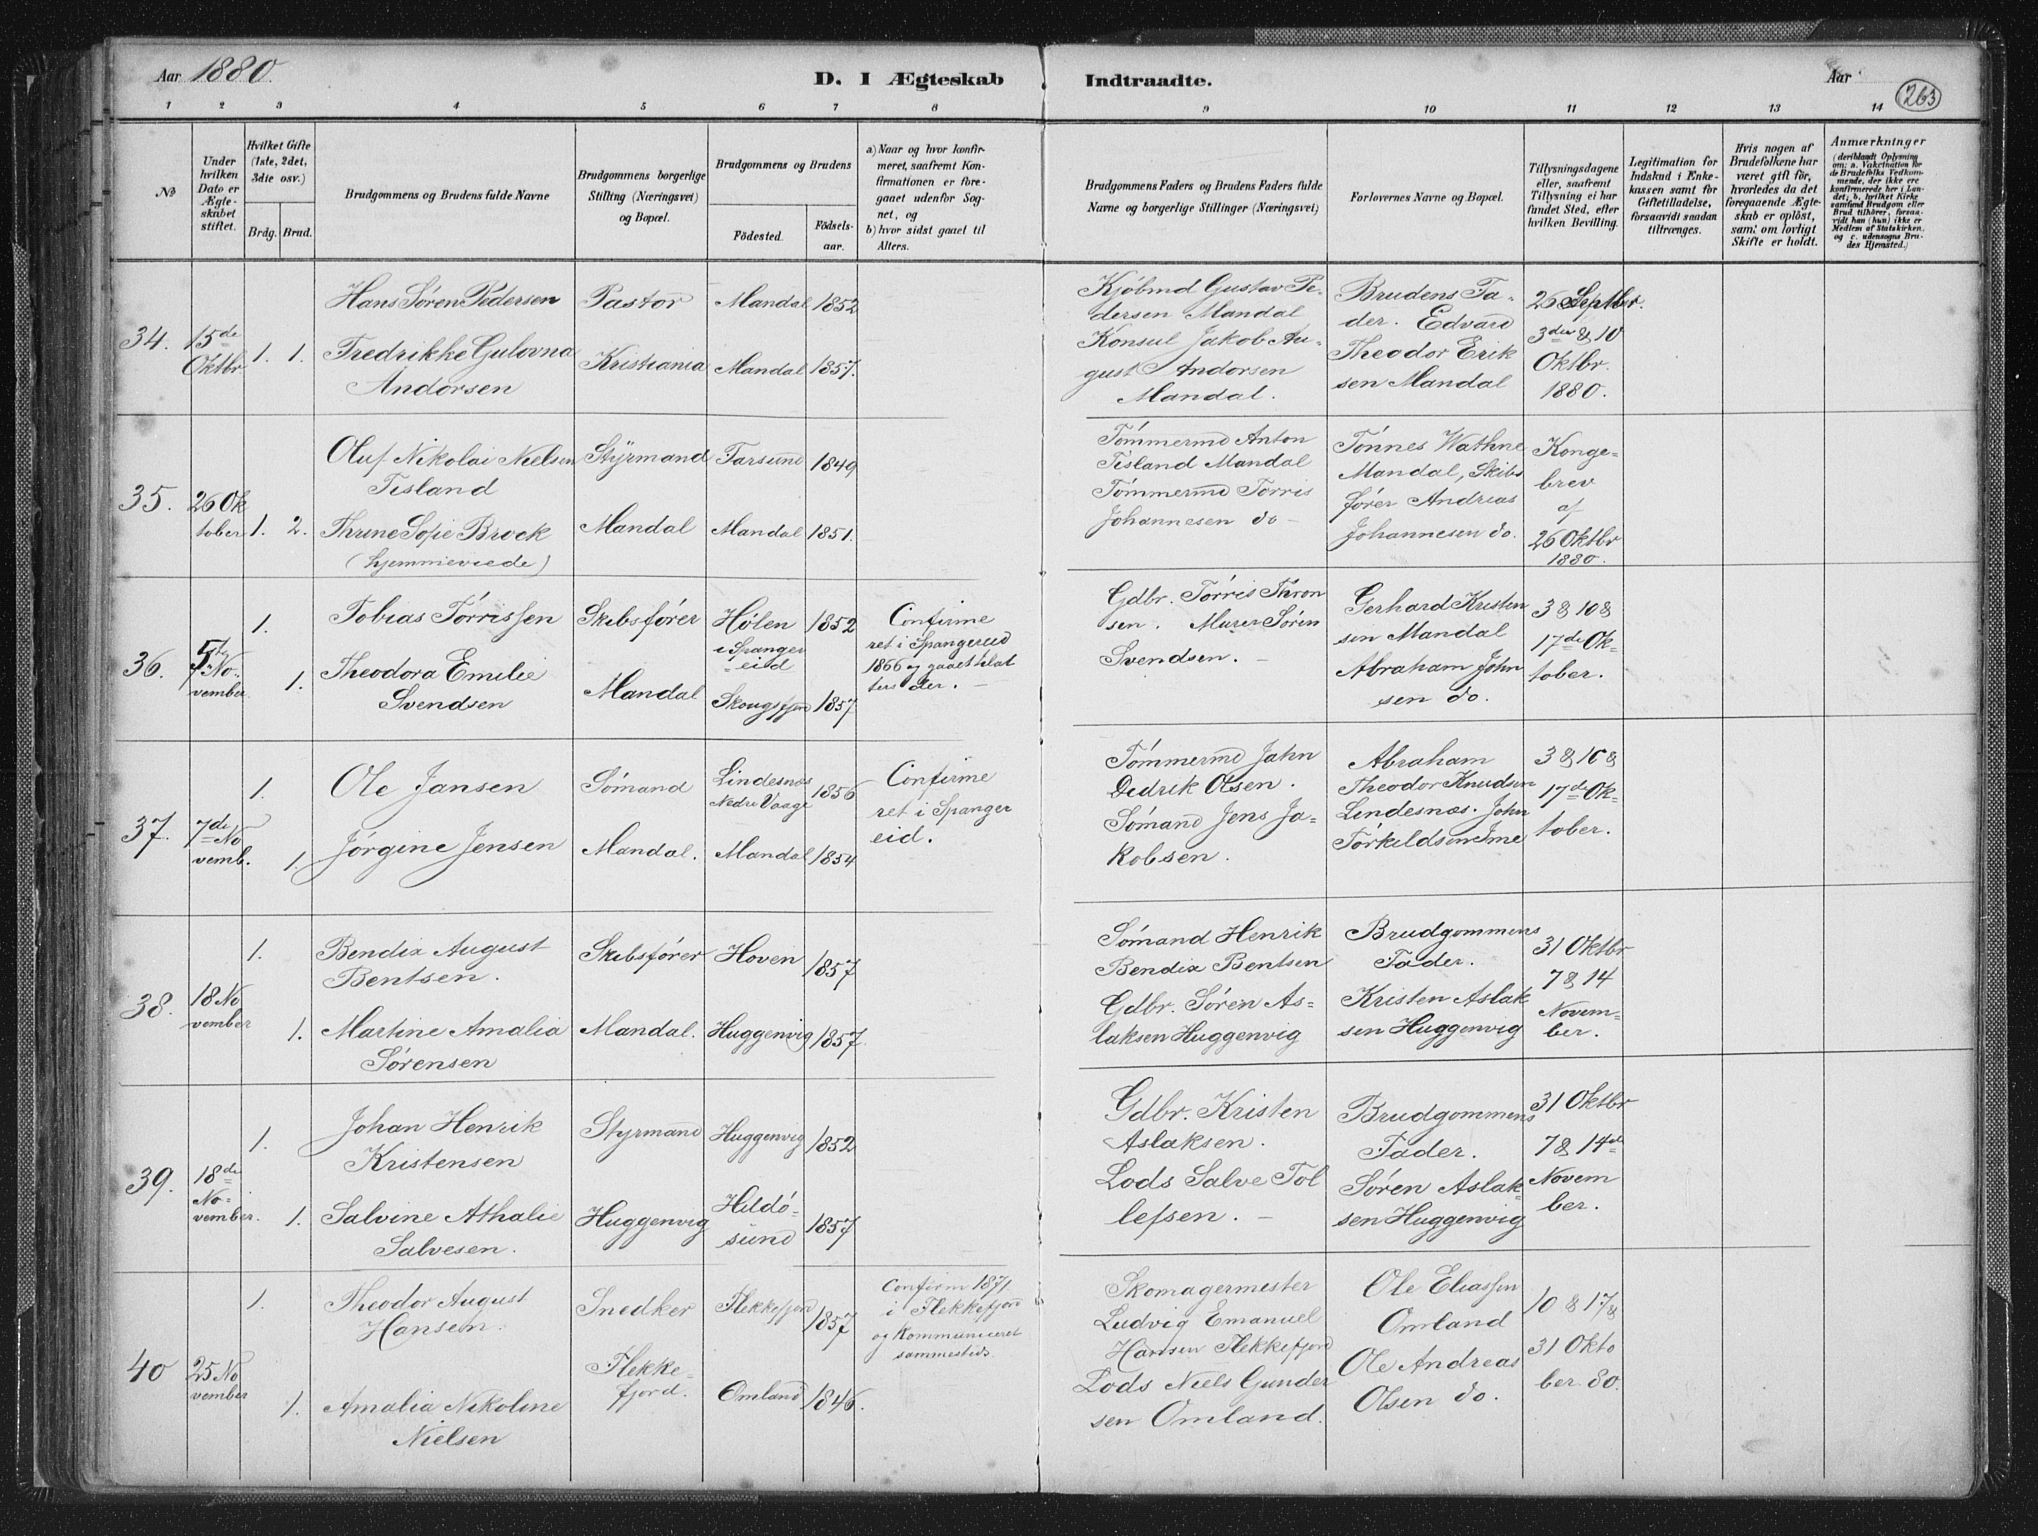 Aar 1880.
D. I Ægteskab
Indtraadte.
Aar
263
1 2 3 4 5 6 7 8 9 10 11 12 13 14
№
Under hvilken Dato er Ægteskabet stiftet.
Hvilket Gifte (1ste, 2det, 3die osv.)
Brdg. Brud.
Brudgommens og Brudens fulde Navne
Brudgommens borgerlige Stilling (Næringsvei) og Bopæl.
Brudgommens og Brudens
Fødested.
Fødselsaar.
a) Naar og hvor konfirmeret, saafremt Konfirmationen er foregaaet udenfor Sognet, og
b) hvor sidst gaaet til Alters.
Brudgommens Faders og Brudens Faders fulde Navne og borgerlige Stillinger (Næringsvei)
Forlovernes Navne og Bopæl.
Tillysningsdagene eller, saafremt Tillysning ei har fundet Sted, efter hvilken Bevilling.
Legitimation for Indskud i Enkekassen samt for Giftetilladelse, forsaavidt saadan tiltrænges.
Hvis nogen af Brudefolkene har været gift før, hvorledes da det foregaaende Ægteskab er opløst, samt om lovligt Skifte er holdt.
Anmærkninger
(deriblandt Oplysning om: a. Vakcination for de Brudefolks Vedkommende, der ikke ere konfirmerede her i Landet; b, hvilket Kirkesamfund Brudgom eller Brud tilhører, forsaavidt han (hun) ikke er Medlem af Statskirken, og c. udensogns Brudes Hjemsted.)
34.
15de
Oktbr
1. 1.
Hans Sören Pedersen
Fredrikke Gulovna
Andorsen
Pastor
Kristiania
Mandal 1852
Mandal 1857.
Kjöbmd Gustav Pe-
dersen Mandal
Konsul Jakob Au-
gust Andorsen
Mandal.
Brudens Fa-
der. Edvard
Theodor Erik
sen Mandal
26 Septbr.
3die & 10
Oktbr.
1880.
35.
26 Ok
tober
1. 2.
Oluf Nikolai Nielsen
Tisland
Thrine Sofie Brock
(hjemmeviede)
Styrmand
Mandal
Farsund 1849
Mandal 1851.
Tömmermd Anton
Tisland Mandal
Tömmermd Törris
Johannesen do -
Tönnes Wathne
Mandal, Skibs
förer Andreas
Johannesen do.
Konge-
brev
af
26 Oktbr
1880.
36.
5te No-
vember.
1.
1.
Tobias Törrissen
Theodora Emilie
Svendsen
Skibsförer
Mandal
Hölen 1852
i Spanger
eid
Skougsfjord 1857
Confirme
ret i Spangereid
1866 og gaaet til at
ters der. -
Gdbr. Törris Thron
sen. Murer Sören
Svendsen. -
Gerhard Kristen
sen Mandal
Abraham John
sen do.
3 & 10 &
17de Ok-
tober.
37.
7de No
vemb.
1.
1.
Ole Jansen
Jörgine Jensen
Sömand
Mandal.
Lindesnæs
Nedre Vaage 1856
Mandal 1854
Confirme
ret i Spanger
eid.
Tömmermd Jahn
Didrik Olsen.
Sömand Jens Ja-
kobsen.
Abraham
Theodor Knudsen
Lindesnæs. John
Törkildsen Ime
3 & 10 &
17de Ok-
tober.
38.
18 No
vember
1.
1.
Bendix August
Bentsen.
Martine Amalia
Sörensen
Skibsförer
Mandal.
Hoven 1857
Huggenvig 1857
Sömand Henrik
Bendix Bentsen
Gdbr. Sören As-
laksen Huggenvig
Brudgommens
Fader.
Kristen Aslak
sen Huggenvig
31 Oktbr
7 & 14
Novem-
ber.
39.
18de
No-
vember.
1.
1.
Johan Henrik
Kristensen
Salvine Athalie
Salvesen.
Styrmand
Huggenvig
Huggenvig 1852
Hildö-
sund 1857
Gdbr. Kristen
Aslaksen.
Lods Salve Tol
lefsen. -
Brudgommens
Fader.
Sören Aslak-
sen Huggenvig
31 Oktbr
7 & 14de
Novem
ber.
40
25 No
vember
1.
1.
Theodor August
Hansen.
Amalia Nikoline
Nielsen
Snedker
Flekke-
fjord.
Flekkefjord 1857
Omland 1846.
Confirm 1871
i Flekkefjord
og kommuniceret
sammesteds.
Skomagermester
Ludvig Emanuel
Hansen Flekkefjord
Lods Niels Gunder
sen Omland.
Ole Eliassen
Omland
Ole Andreas
Olsen do.
10 & 17 &
31 Okto
ber 80.